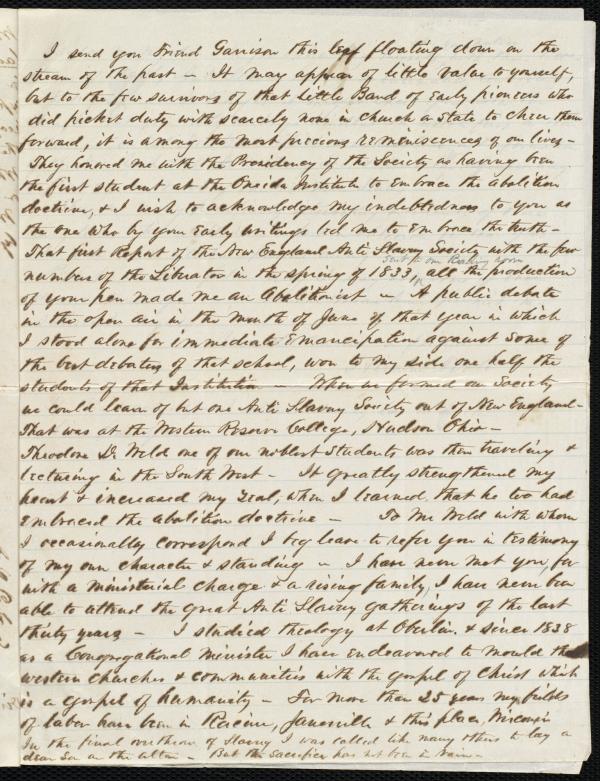 I send you Friend Garrison this leaf floating down on the
stream of the past – It may appear of little value to yourself,
but to the few survivors of that little Band of early pioneers who
did picket duty with scarcely none in church or State to cheer them
forward, it is among the most precious reminiscences of our lives –
They honored me with the Presidency of the Society as having been
the first student at the Oneida Institute to embrace the abolition
doctrine, & I wish to acknowledge my indebtedness to you as
the one who by your early writings led me to embrace the truth –
That first Report of the New England Anti Slavery Society with the few
sent to our Reading room
numbers of the Liberator in the spring of 1833, all the production
of your pen made me an Abolitionist – A public debate
in the open air in the month of June of that year in which
I stood alone for immediate emancipation against some of
the best debaters of that school, won to my side one half the
students of that Institution – When we formed our Society
we could learn of but one Anti Slavery Society out of New England –
That was at the Western Reserve College, Hudson Ohio –
Theodore D. Weld one of our noblest students was then traveling &
lecturing in the South West – It greatly strengthened my
heart & increased my zeal, when I learned that he too had
embraced the abolition doctrine – To Mr Weld with whom
I occasionally correspond I beg leave to refer you in testimony
of my own character & standing – I have never met you, for
with a ministerial charge & a rising family, I have never been
able to attend the great Anti Slavery gatherings of the last
thirty years – I studied theology at Oberlin & since 1838
as a Congregational minister I have endeavored to mould the
western churches & communities with the gospel of Christ which
is a gospel of humanity – For more than 25 years my fields
of labor have been in Racine, Janesville & this place, Wisconsin
In the final overthrow of Slavery I was called like many others to lay a
dear Son on the altar – But the sacrifice has not been in vain –